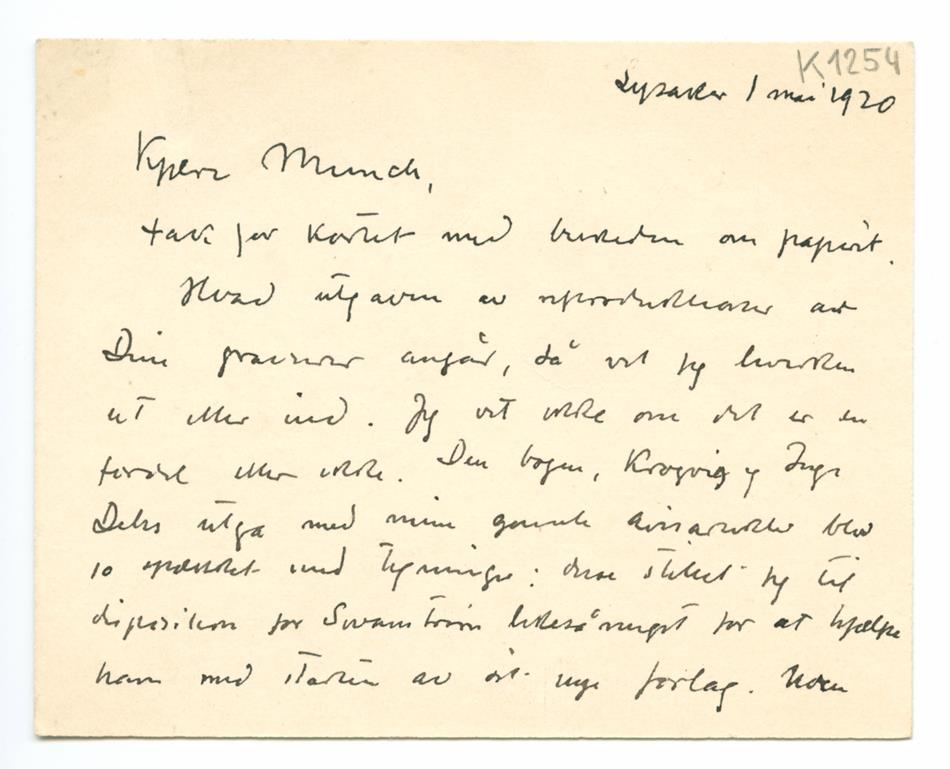 K1254
Lysaker 1 mai 1920
Kjære Munch,
tak for kortet med beskeden om papiret.
Hvad utgaven av reproduktioner av
Dine gravurer angår, så vet jeg hverken
ut eller ind. Jeg vet ikke om det er en
fordel eller ikke. Den bogen, Krogvig og Inge
Debes utga med mine gamle avisartikler blev
jo spækket med tegninger: disse stillet jeg til
disposition for Swanström likesåmeget for at hjælpe
ham med starten av sit nye forlag. Noen